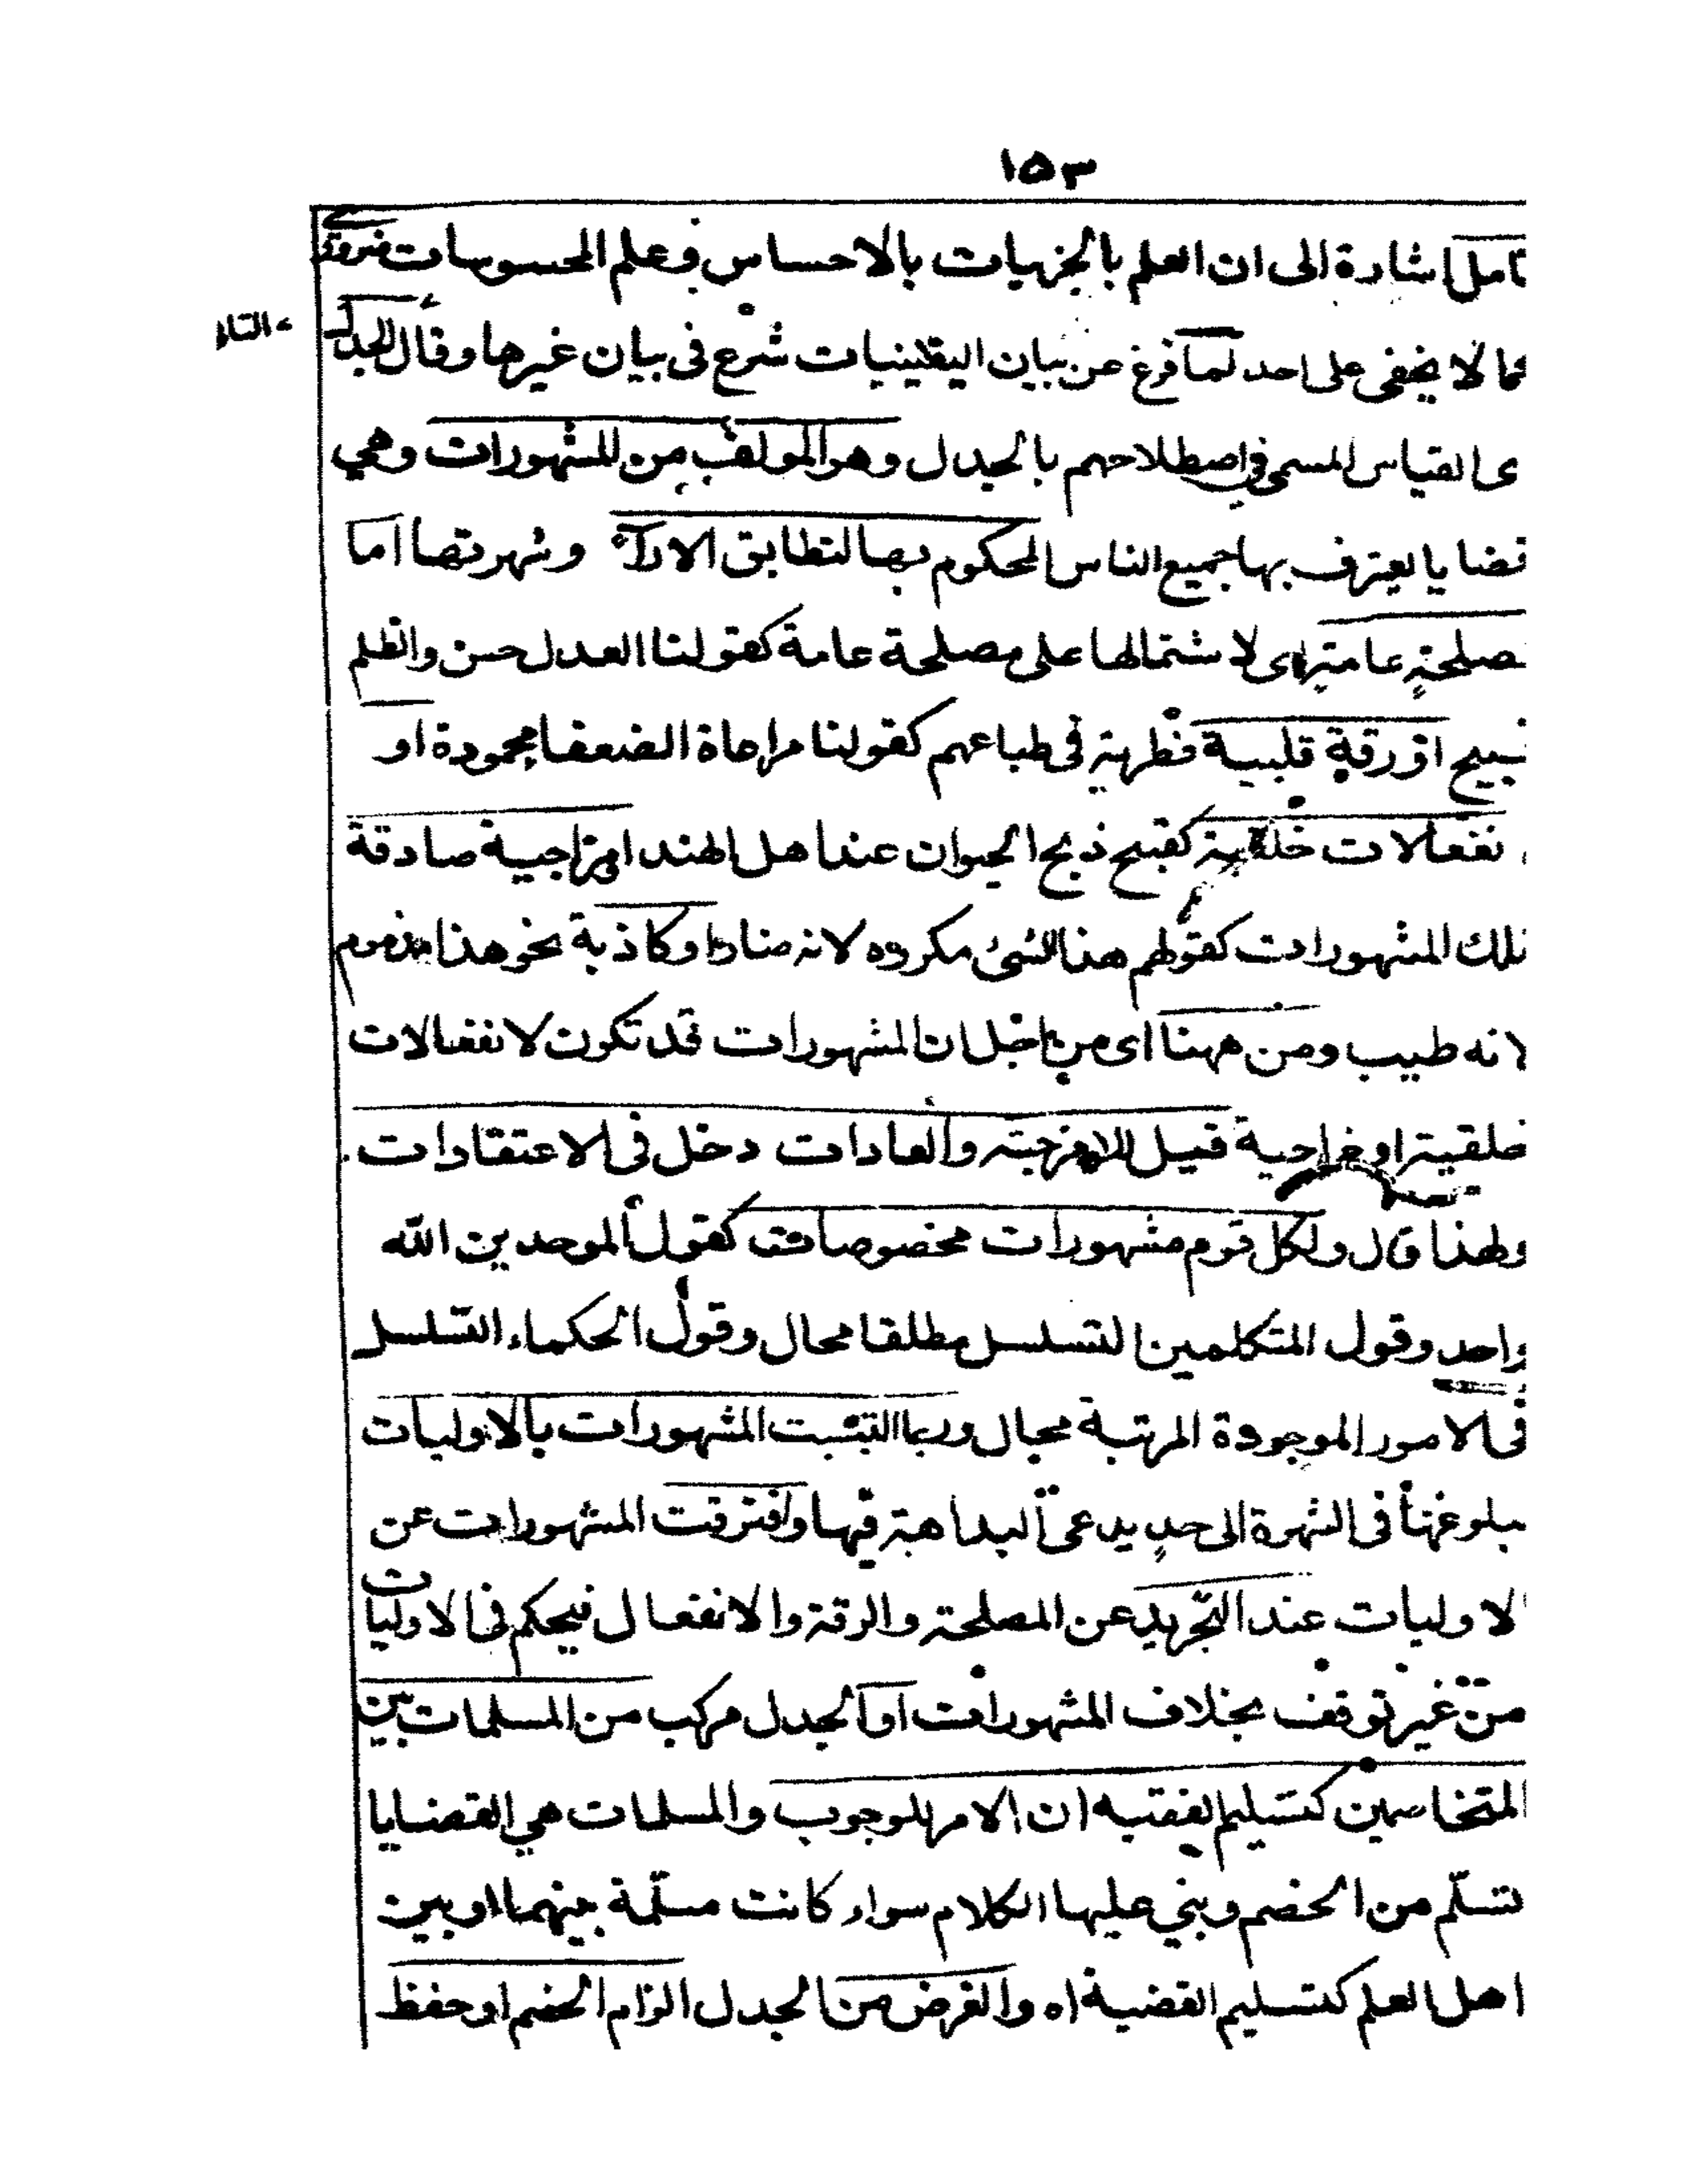 ١٥٣
تامل اشارة الى ان العلم بالجزئيات بالاحساس وعلم المحسوسات ضروري
مما لا يخفى على احد لما فرغ عن بيان اليقينيات شرع فى بيان غيرها وقال الجدل
ى القياس المسمى فى اصطلاحهم بالجدل وهو المولف من المشهورات وهي
قضايا يعترف بها جميع الناس المحكوم بها لتطابق الاراء وشهرتها اما
لمصلحة عامة اى لاشتمالها على مصلحة عامة كقولنا العدل حسن والظلم
قبيح او رقة قلبية فطرية فى طباعهم كقولنا مراعاة الضعفا محمودة او
نفعالات خلقية كقبح ذبح الحيوان عند اهل الهند او مزاجية صادقة
تلك المشهورات كقولهم هذا الشئ مكروه لانه ضار او كاذبة نحو هذا مذموم
لانه طيب ومن ههنا اى من اجل ان المشهورات قد تكون لانفعالات
خلقية او مزاجية قيل للامزجة والعادات دخل فى الاعتقادات
ولهذا قال ولكل قوم مشهورات مخصوصات كقول الموحدين الله
واحد وقول المتكلمين التسلسل مطلقا محال وقول الحكماء التسلسل
فى الامور الموجودة المرتبة محال وربما التبست المشهورات بالاوليات
ببلوغها فى الشهرة الى حد يدعى البداهة فيها وافترقت المشهورات عن
الاوليات عند التجريد عن المصلحة والرقة والانفعال فيحكم فى الاوليات
من غير توقف بخلاف المشهورات او الجدل مركب من المسلمات بين
المتخاصمين كتسليم الفقيه ان الامر للوجوب والمسلمات هي القضايا
تتسلّم من الخصم ويبني عليها الكلام سواء كانت مسلّمة بينهما او بين
اهل العلم كتسليم القضية اه والغرض من الجدل الزام الخصم او حفظ